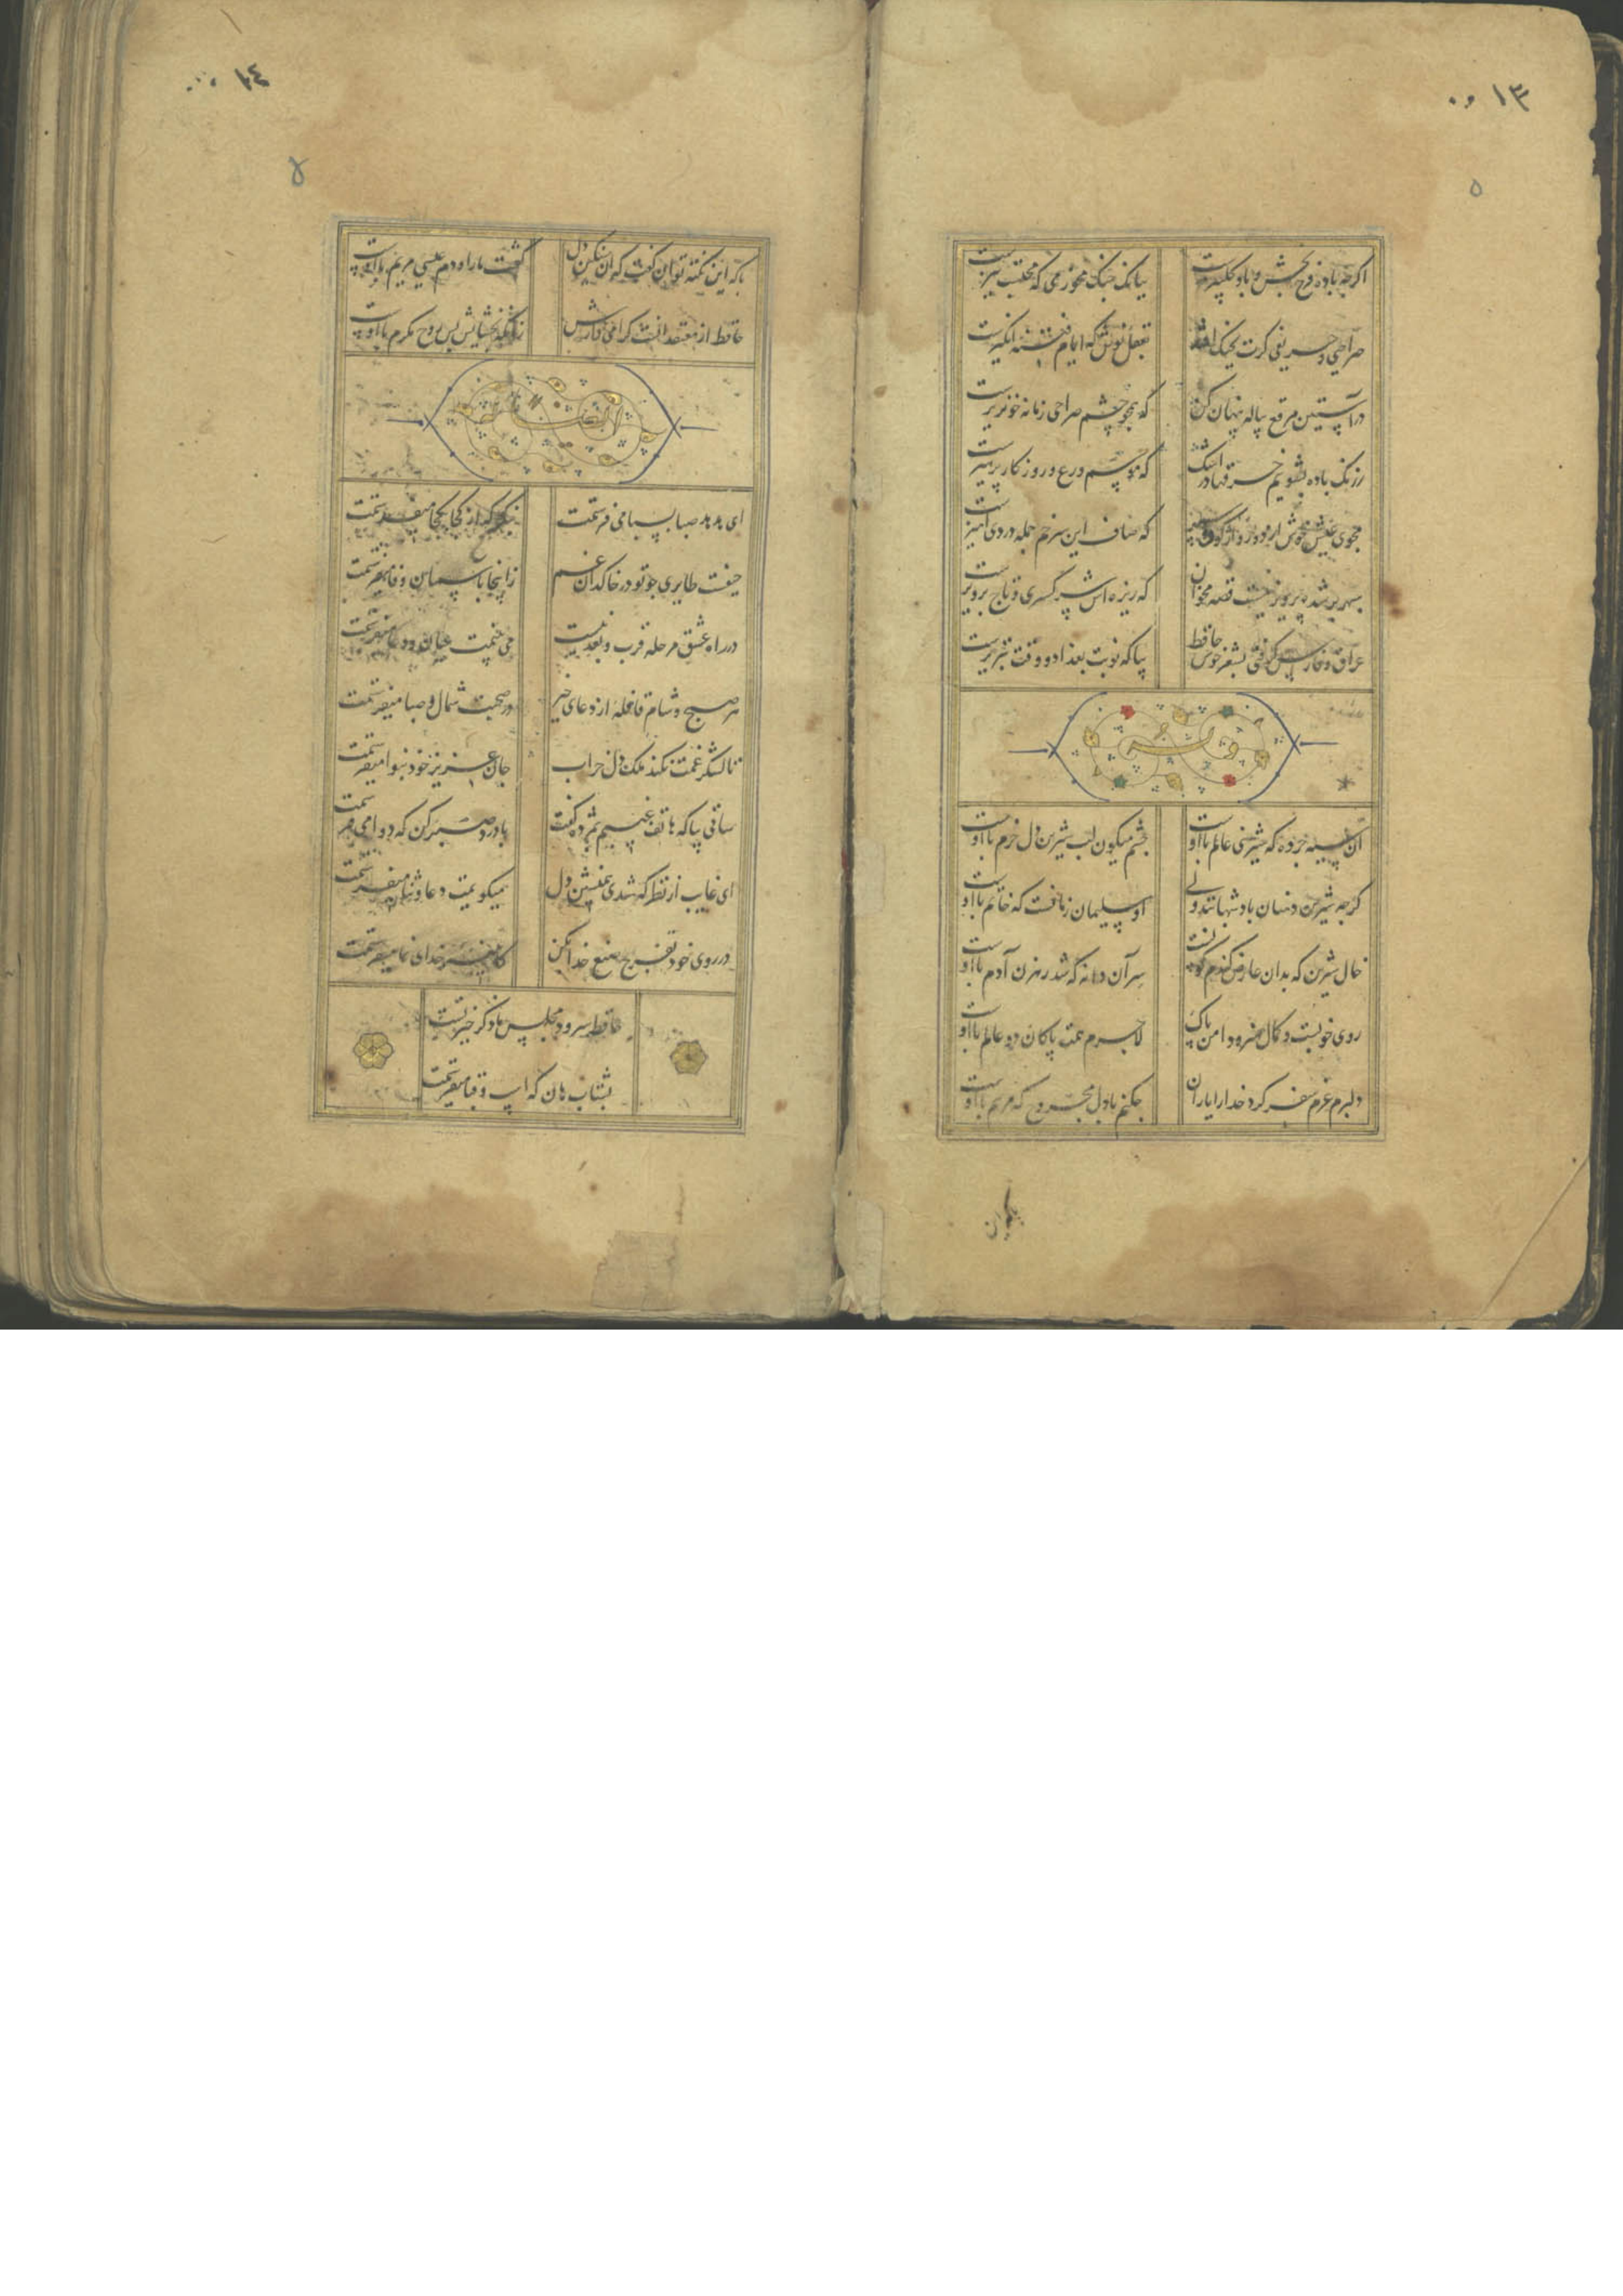 ١٣
٥
اکرچه باده فرح بخش و باد کلبیزست
ببانک چنک مخور می که محتسب تیزست
صراحی و حریفی کرت بچنک افتد
بعقل نوش که ایام فتنه انکیزست
در آستین مرقع پیاله پنهان کن
که همچو چشم صراحی زمانه خونریزست
زرنک باده بشوییم خرقها در اشک
که موسم ورع و روزکار پرهیزست
مجوی عیش خوش از دور واژکون سپهر
که صاف این سر خم جمله دردی آمیزست
سپهر بر شده پرویز نیست قصه مخوان
که ریزه‌اش سر کسری و تاج پرویزست
عراق و فارس کرفتی بشعر خوش حافظ
بیا که نوبت بغداد و وقت تبریزست
وله
آن سیه چرده که شیرینی عالم با اوست
چشم میکون لب شیرین دل خرم با اوست
کرچه شیرین دهنان پادشهانند ولی
او سلیمان زمانست که خاتم با اوست
خال شیرین که بدان عارض کندم کونست
سر آن دانه که شد رهزن آدم با اوست
روی خوبست و کمال هنر و دامن پاک
لاجرم همت پاکان دو عالم با اوست
دلبرم عزم سفر کرد خدا را یاران
چکنم با دل مجروح که مرهم با اوست
١٤
با که این نکته توان کفت که آن سنکین دل
کشت ما را و دم عیسی مریم با اوست
حافظ از معتقدانست کرامی دارش
زانکه بخشایش بس روح مکرم با اوست
ای هدهد صبا بسبا می فرستمت
بنکر که از کجا بکجا میفرستمت
حیفست طایری چو تو در خاکدان غم
زاینجا باشیان وفا میفرستمت
در راه عشق مرحله قرب و بعد نیست
می بینمت عیان و دعا میفرستمت
هر صبح و شام قافله از دعای خیر
در صحبت شمال و صبا میفرستمت
تا لشکر غمت نکند ملک دل خراب
جان عزیز خود بنوا میفرستمت
ساقی بیا که هاتف غیبم بمژده کفت
با درد صبر کن که دوا می فرستمت
ای غایب از نظر که شدی همنشین دل
میکویمت دعا و ثنا میفرستمت
در روی خود تفرج صنع خدای کن
کایینه خدای نما میفرستمت
حافظ سرود مجلس ما ذکر خیر تست
بشتاب هان که اسب و قبا میفرستمت